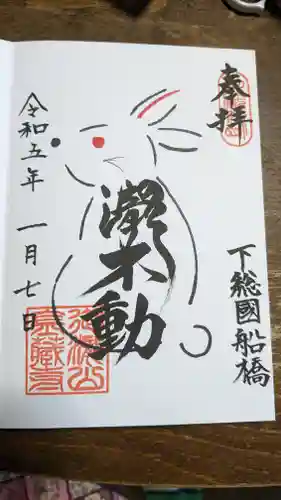 奉拝
下総國船橋
瀧不動
令和五年 一月七日